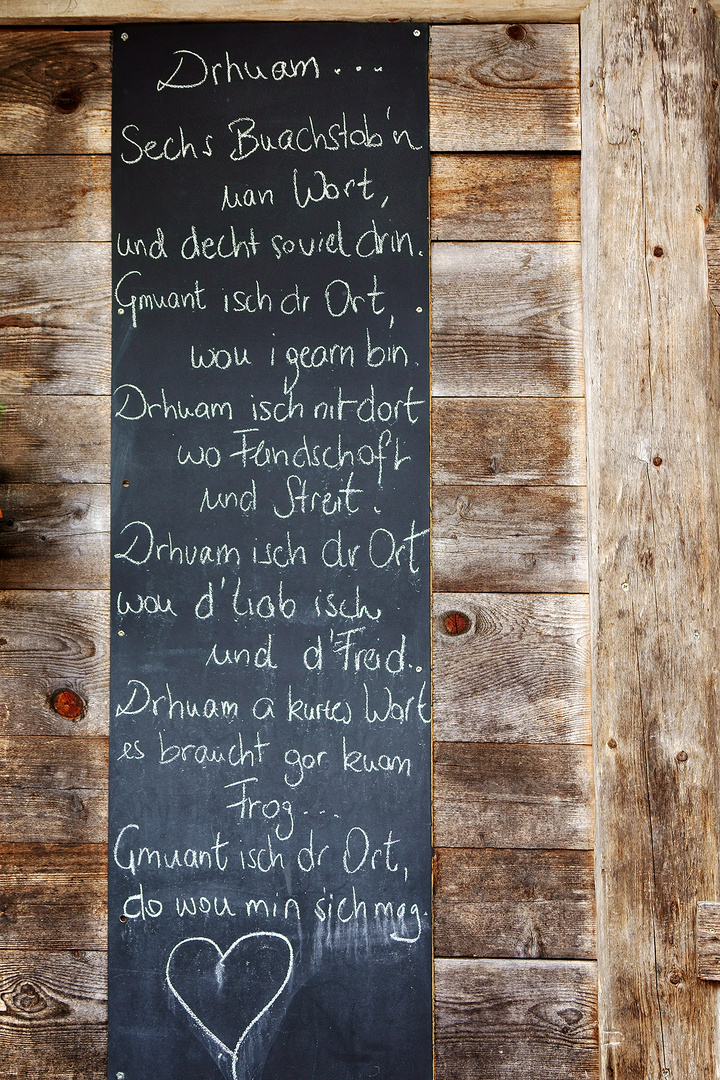 Drhuam...
Sechs Buachstob'n
uan Wort,
und decht soviel drin.
Gmuant isch dr Ort,
wou i gearn bin.
Drhuam isch nit dort
wo Feindschoft
und Streit.
Drhuam isch dr Ort
wou d'Liab isch
und d'Freid.
Drhuam a kurtes Wort
es braucht gor kuan
Frog...
Gmuant isch dr Ort,
do wou min sich mog.